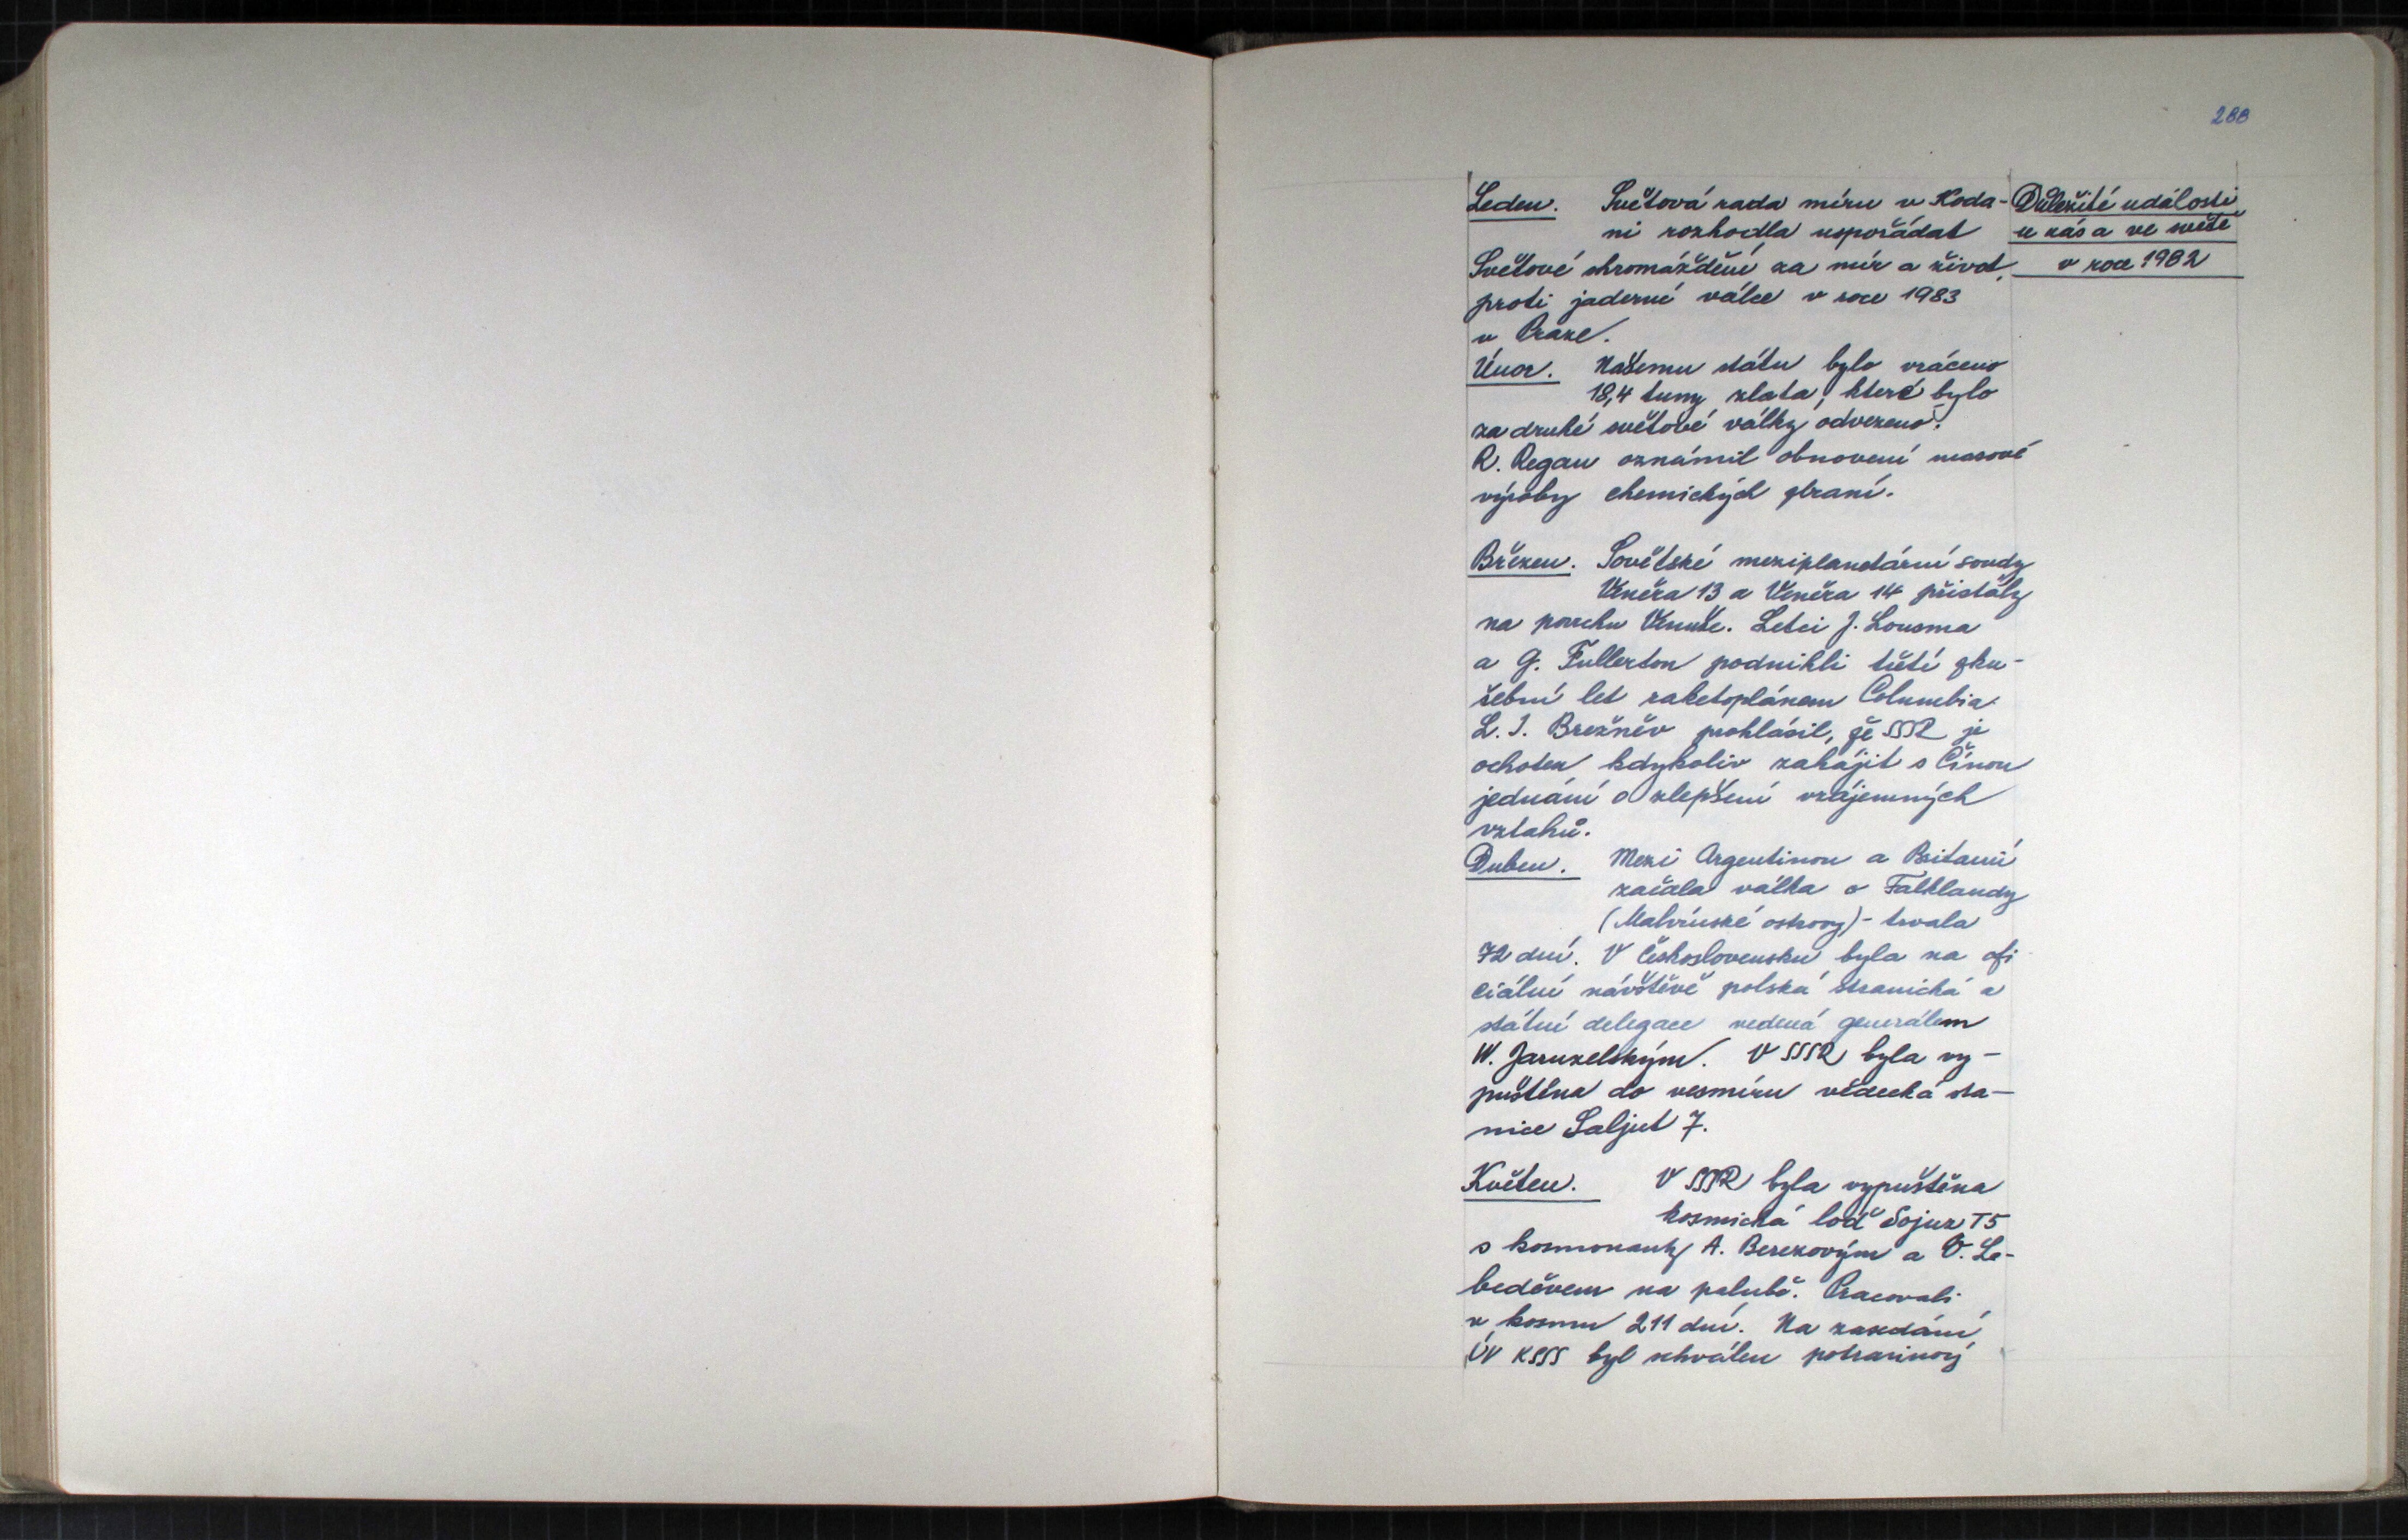 288
Důležité události
u nás a ve světě
v roce 1982
Leden. Světová rada míru v Koda-
ni rozhodla uspořádat
Světové shromáždění za mír a život,
proti jaderné válce v roce 1983
v Praze.
Únor. Našemu státu bylo vráceno
18,4 tuny zlata, které bylo
za druhé světové války odvezeno.
R. Regan oznámil obnovení masové
výroby chemických zbraní.
Březen. Sovětské meziplanetární sondy
Veněra 13 a Veněra 14 přistály
na povrchu Venuše. Letci J. Lousma
a G. Fullerton podnikli třetí zku-
šební let raketoplánem Columbia.
L. I. Brežněv prohlásil, že SSSR je
ochoten kdykoliv zahájit s Čínou
jednání o zlepšení vzájemných
vztahů.
Duben. Mezi Argentinou a Britanií
začala válka o Falklandy
(Malvínské ostrovy) - trvala
72 dní. V Československu byla na ofi
ciální návštěvě polská stranická a
státní delegace vedená generálem
W. Jaruzelským. V SSSR byla vy-
puštěna do vesmíru vědecká sta-
nice Saljut 7.
Květen. V SSSR byla vypuštěna
kosmická loď Sojuz T5
s kosmonauty A. Berezovým a V. Le-
beděvem na palubě. Pracovali
v kosmu 211 dní. Na zasedání
ÚV KSSS byl schválen potravinový